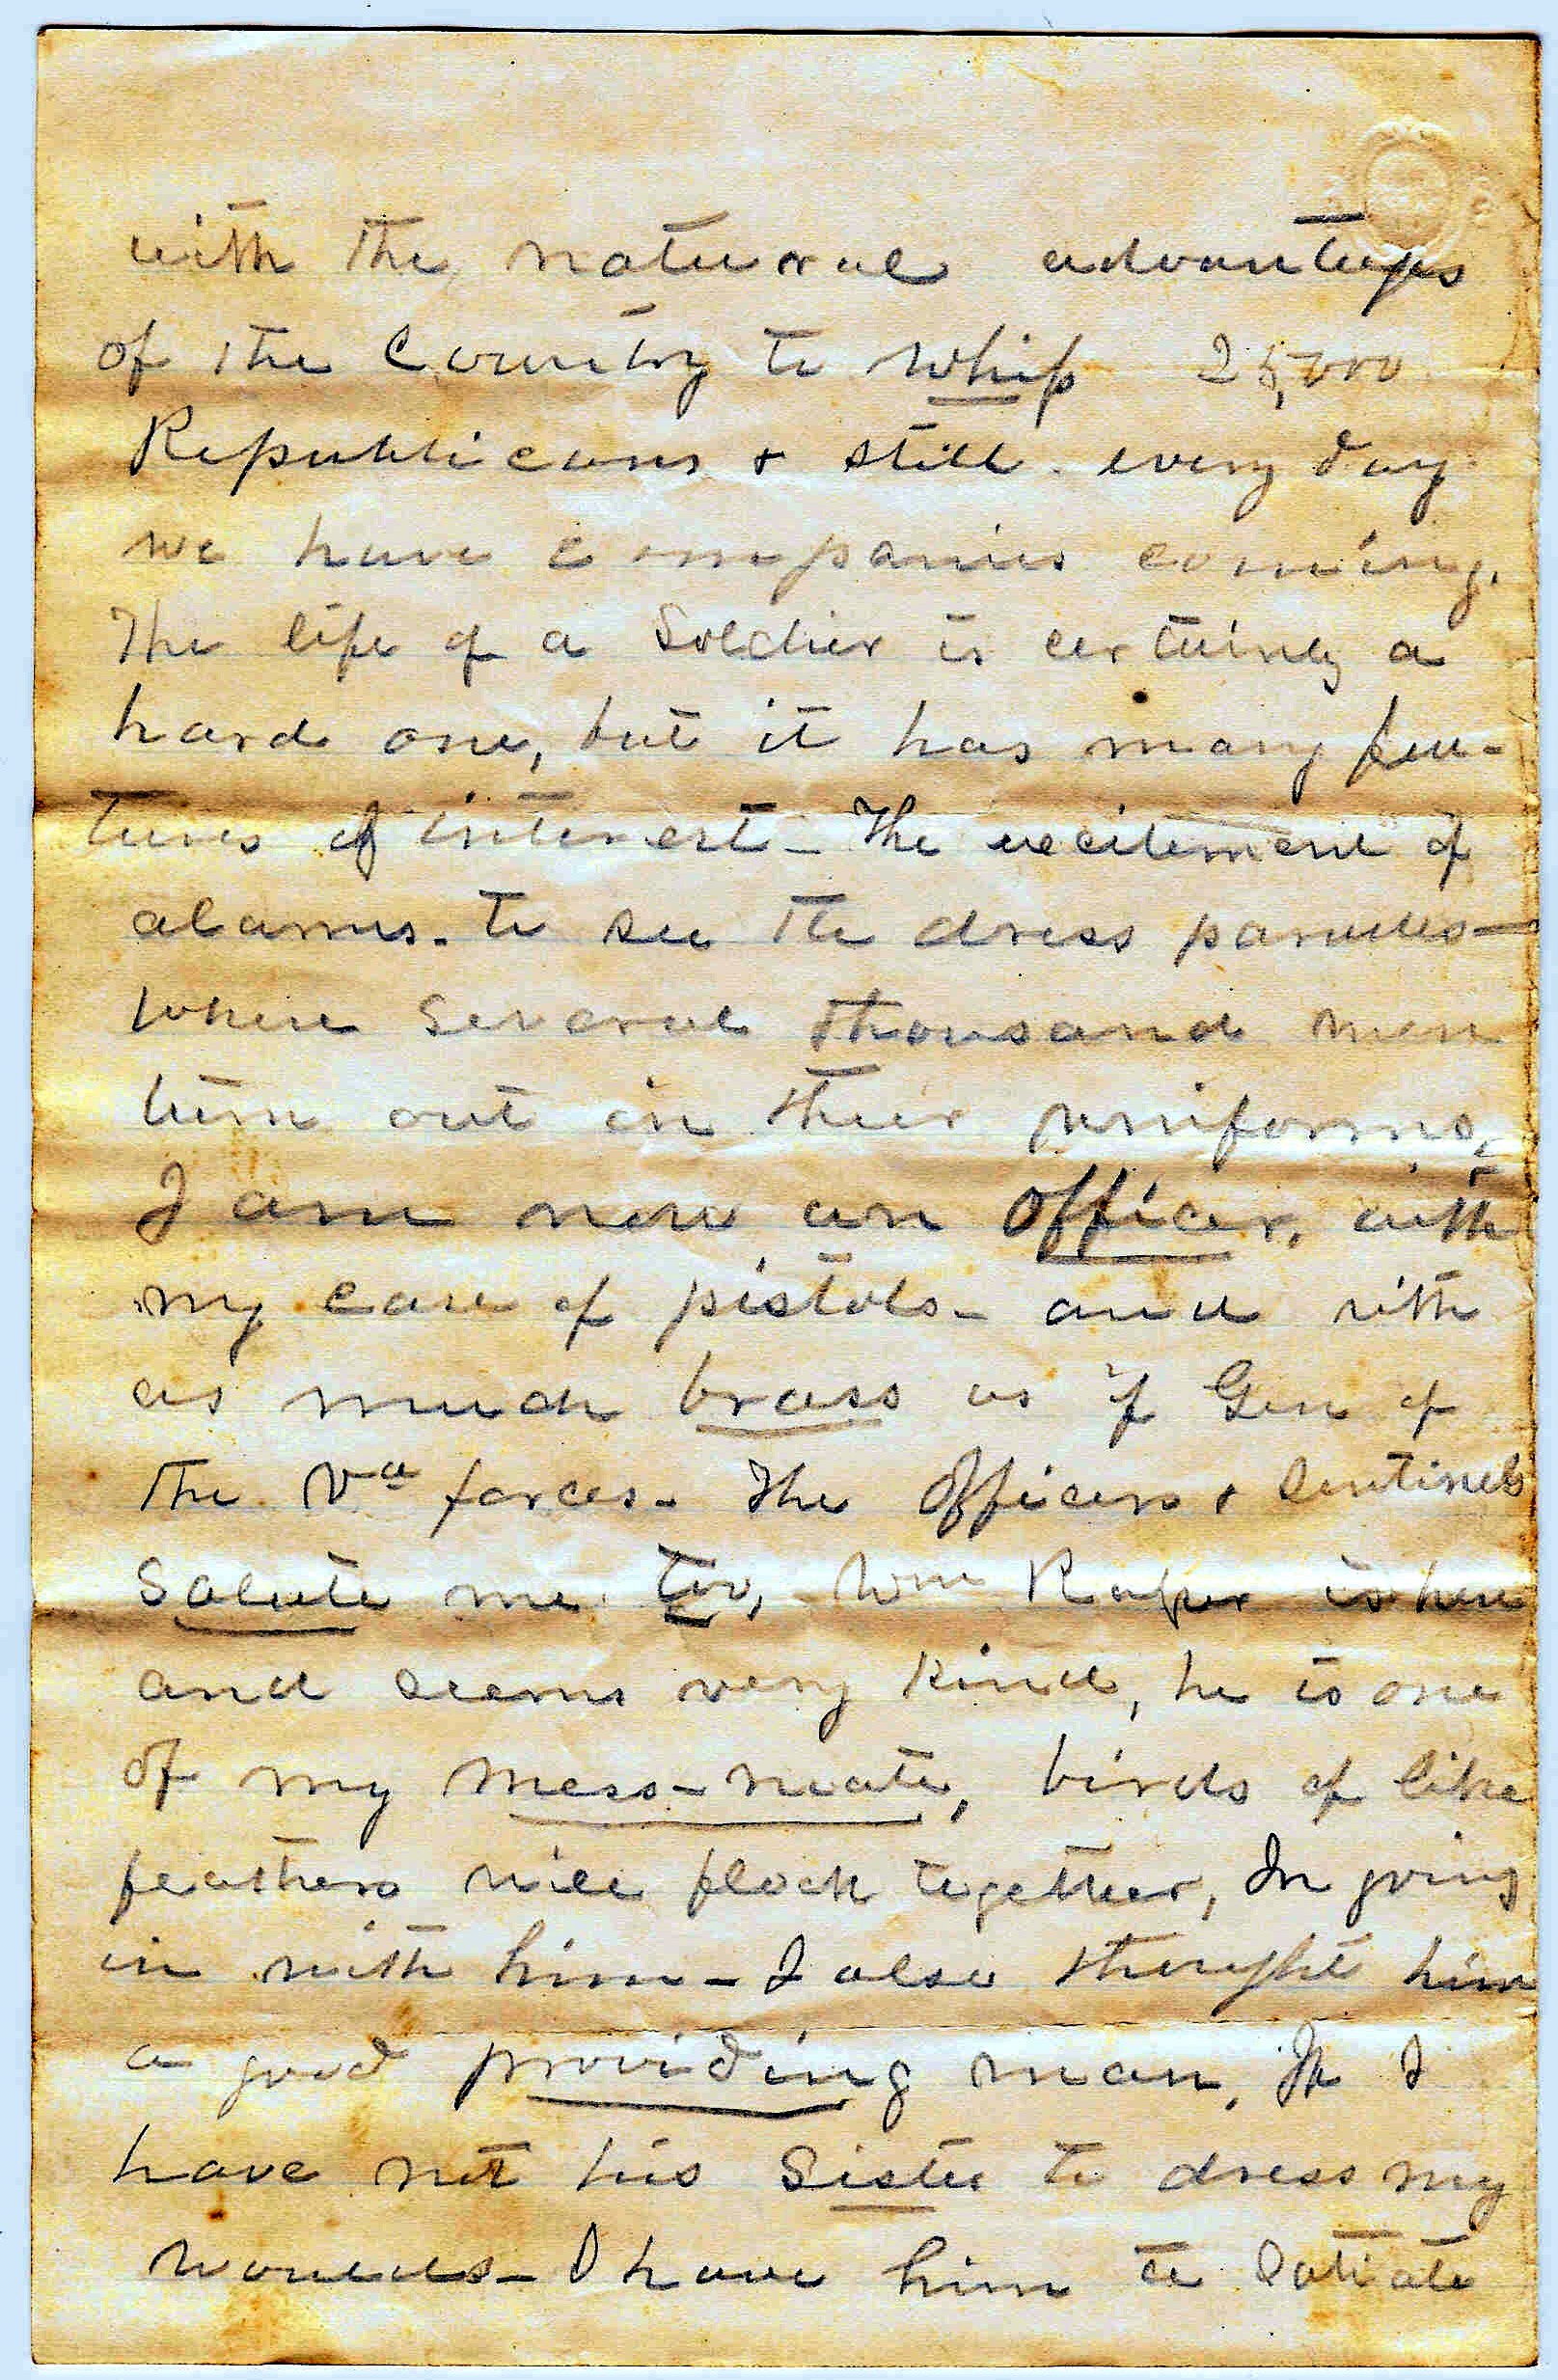 with the natural advantages
of the Country to whip 25,000
Republicans & still every day
we have companies coming.
The life of a Soldier is certainly a
hard one, but it has many fea-
tures of interest - The excitement of
alarms - to see the dress parades —
where several thousand men
turn out in their uniforms,
I am now an officer, with
my case of pistols - and with
as much brass as if Gen of
the Va forces - The Officers & Sentinels
Salute me too, Wm Roper is here
and seems very kind, he is one
of my mess-mates, birds of like
feathers will flock together, In going
in with him - I also thought him
a good providing man, If I
have not his Sister to dress my
wounds - I have him to Satiate